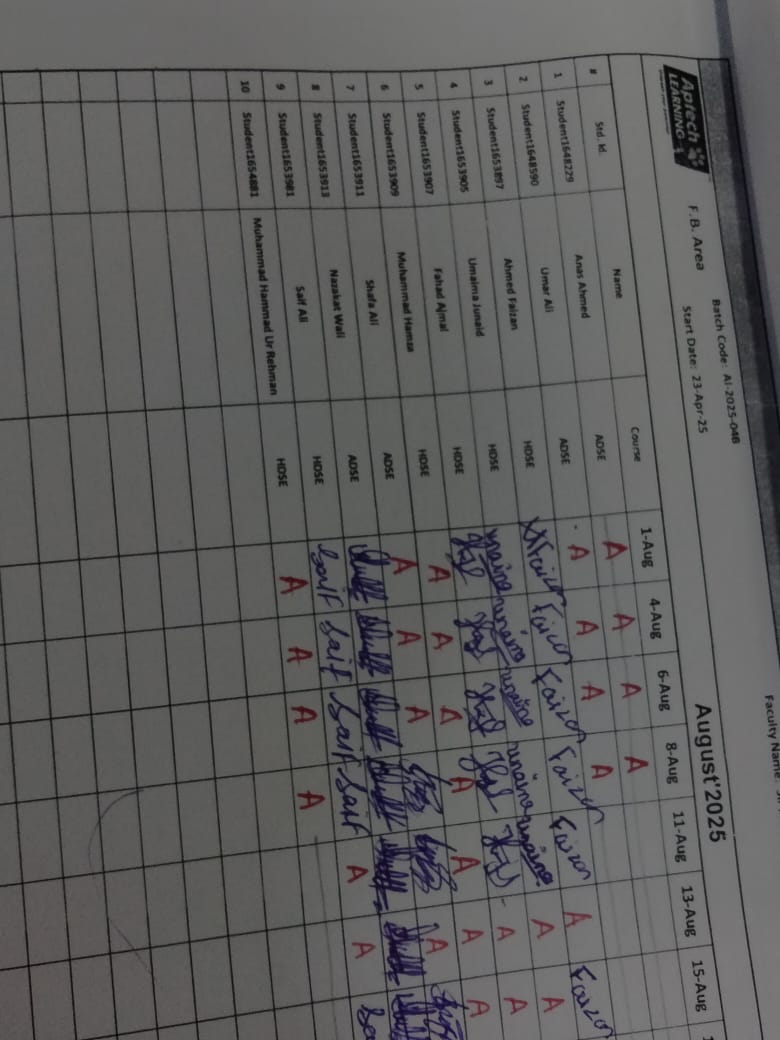 Faculty Name:
Aptech LEARNING
F.B. Area
Batch Code: AI-2025-04B
Start Date: 23-Apr-25
August'2025
# Std. Id. Name Course 1-Aug 4-Aug 6-Aug 8-Aug 11-Aug 13-Aug 15-Aug
1 Student1648229 Anas Ahmed ADSE A A A A
2 Student1648590 Umar Ali ADSE A A A A
3 Student1653897 Ahmed Faizan HDSE Faizan Faizan Faizan Faizan Faizan A Faizan
4 Student1653905 Umaima Junaid HDSE umaima umaima umaima umaima umaima A A
5 Student1653907 Fahad Ajmal HDSE A A
6 Student1653909 Muhammad Hamza HDSE A A A A A A A
7 Student1653911 Shafa Ali ADSE A A A A
8 Student1653913 Nazakat Wali ADSE
9 Student1653981 Saif Ali HDSE Saif Saif Saif Saif A A
10 Student1654081 Muhammad Hammad Ur Rehman HDSE A A A A